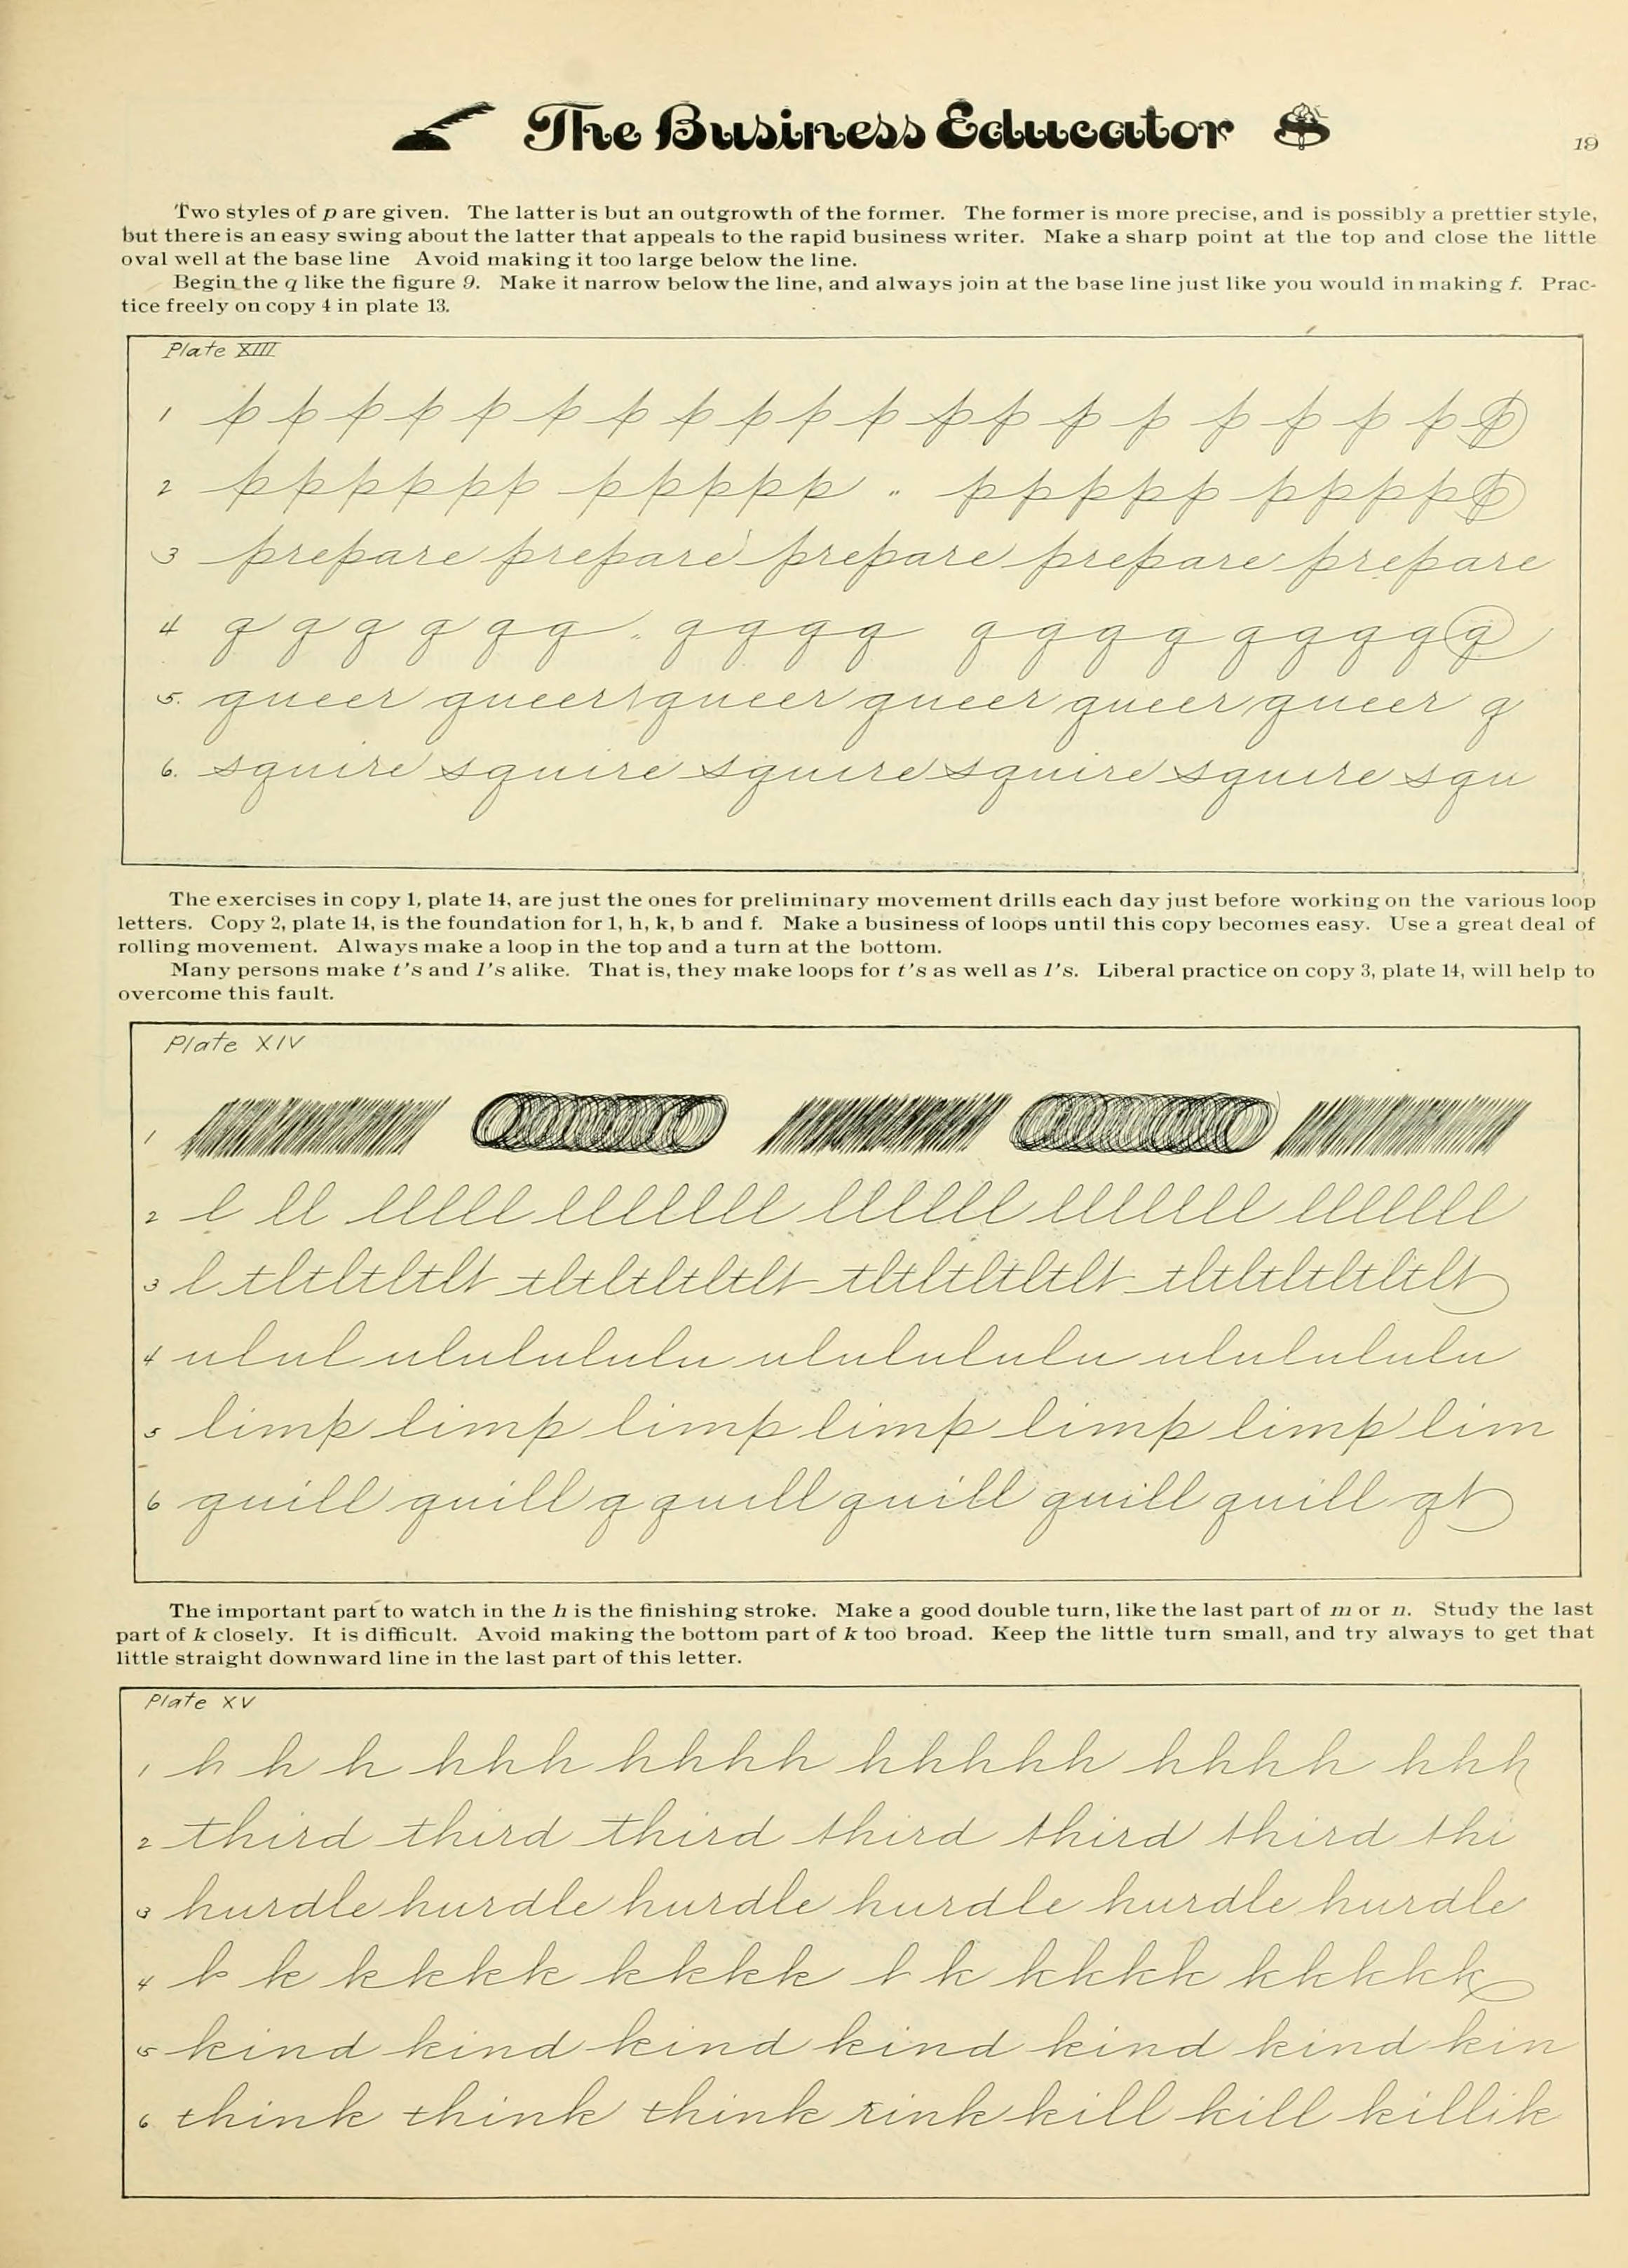 The Business Educator
19
Two styles of p are given. The latter is but an outgrowth of the former. The former is more precise, and is possibly a prettier style,
but there is an easy swing about the latter that appeals to the rapid business writer. Make a sharp point at the top and close the little
oval well at the base line Avoid making it too large below the line.
Begin the q like the figure 9. Make it narrow below the line, and always join at the base line just like you would in making f. Prac-
tice freely on copy 4 in plate 13.
Plate XIII
1 p p p p p p p p p p p p p p p p p p p p
2 pppppp ppppp " ppppp ppppp
3 prepare prepare prepare prepare prepare
4 q q q q q q q q q q q q q q q q q q q
5. queer queer queer queer queer queer q
6. squire squire squire squire squire squ
The exercises in copy 1, plate 14, are just the ones for preliminary movement drills each day just before working on the various loop
letters. Copy 2, plate 14, is the foundation for l, h, k, b and f. Make a business of loops until this copy becomes easy. Use a great deal of
rolling movement. Always make a loop in the top and a turn at the bottom.
Many persons make t's and l's alike. That is, they make loops for t's as well as l's. Liberal practice on copy 3, plate 14, will help to
overcome this fault.
Plate XIV
1
2 l ll lllll lllllll llllll lllllll lllllll
3 l tltltltlt tltltltltlt tltltltltlt tltltltltltlt
4 ulul ulululululu ulululululu ulululululu
5 limp limp limp limp limp limp lim
6 quill quill q quill quill quill quill qt
The important part to watch in the h is the finishing stroke. Make a good double turn, like the last part of m or n. Study the last
part of k closely. It is difficult. Avoid making the bottom part of k too broad. Keep the little turn small, and try always to get that
little straight downward line in the last part of this letter.
Plate XV
1 h h h hhh hhhh hhhhh hhhh hhh
2 third third third third third third thi
3 hurdle hurdle hurdle hurdle hurdle hurdle
4 k k kkkk kkkk l k kkkk kkkkk
5 kind kind kind kind kind kind kin
6 think think think rink kill kill killik